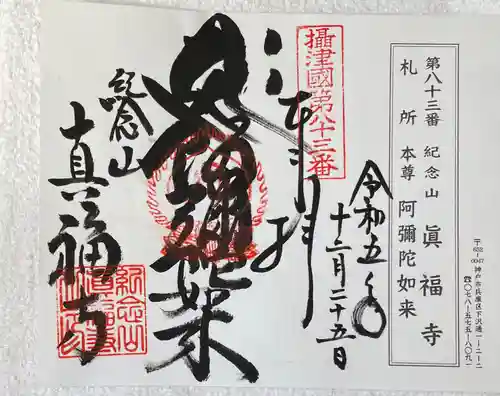 第八十三番 紀念山 眞福寺
札所 本尊 阿彌陀如来
〒652-0047 神戸市兵庫区下沢通一ー二ー二
☎〇七八ー五七五ー八〇九一
攝津國第八十三番
奉拝
令和五年
十二月二十五日
阿彌陀如来
紀念山
真福寺